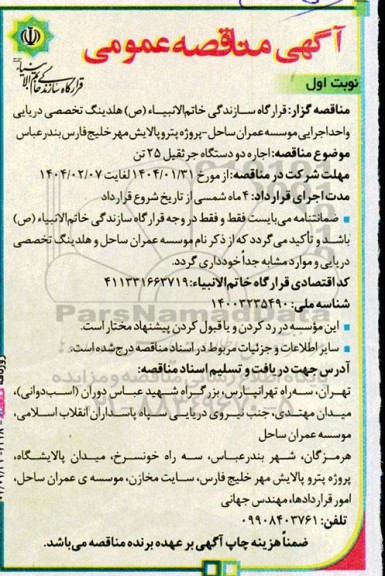 آگهی مناقصه عمومی
قرارگاه سازندگی خاتم‌الانبیاء
نوبت اول
مناقصه گزار: قرارگاه سازندگی خاتم‌الانبیاء (ص) هلدینگ تخصصی دریایی
واحداجرایی موسسه عمران ساحل-پروژه پتروپالایش مهر خلیج‌فارس بندرعباس
موضوع مناقصه: اجاره دو دستگاه جرثقیل ۲۵ تن
مهلت شرکت در مناقصه: از مورخ ۱۴۰۴/۰۱/۳۱ لغایت ۱۴۰۴/۰۲/۰۷
مدت اجرای قرارداد: ۴ ماه شمسی از تاریخ شروع قرارداد
▪ ضمانتنامه می‌بایست فقط و فقط در وجه قرارگاه سازندگی خاتم‌الانبیاء (ص)
باشد و تأکید می‌گردد که از ذکر نام موسسه عمران ساحل و هلدینگ تخصصی
دریایی و موارد مشابه جداً خودداری گردد.
کد اقتصادی قرارگاه خاتم‌الانبیاء: ۴۱۱۳۳۱۶۶۳۷۱۹
شناسه ملی: ۱۴۰۰۳۲۳۵۴۹۰
▪ این مؤسسه در رد کردن و یا قبول کردن پیشنهاد مختار است.
▪ سایر اطلاعات و جزئیات مربوط در اسناد مناقصه درج شده است.
آدرس جهت دریافت و تسلیم اسناد مناقصه:
تهران، سه‌راه تهرانپارس، بزرگراه شهید عباس دوران (اسب‌دوانی)،
میدان مهتدی، جنب نیروی دریایی سپاه پاسداران انقلاب اسلامی،
موسسه عمران ساحل
هرمزگان، شهر بندرعباس، سه راه خونسرخ، میدان پالایشگاه،
پروژه پترو پالایش مهر خلیج فارس، سایت مخازن، موسسه ی عمران ساحل،
امور قراردادها، مهندس جهانی
تلفن: ۰۹۹۰۸۴۰۳۷۶۱
ضمناً هزینه چاپ آگهی بر عهده برنده مناقصه می‌باشد.
ParsNamadData